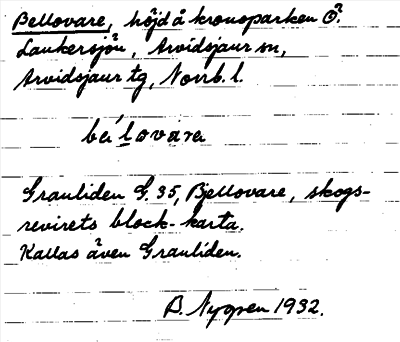 Bellovare, höjd å kronoparken Ö.
Laukersjön, Arvidsjaur sn,
Arvidsjaur tg, Norrb. l.
be´lovare
Granliden G. 35, Bjellovare, skogs-
revirets block-karta.
Kallas även Granliden.
B. Nygren 1932.